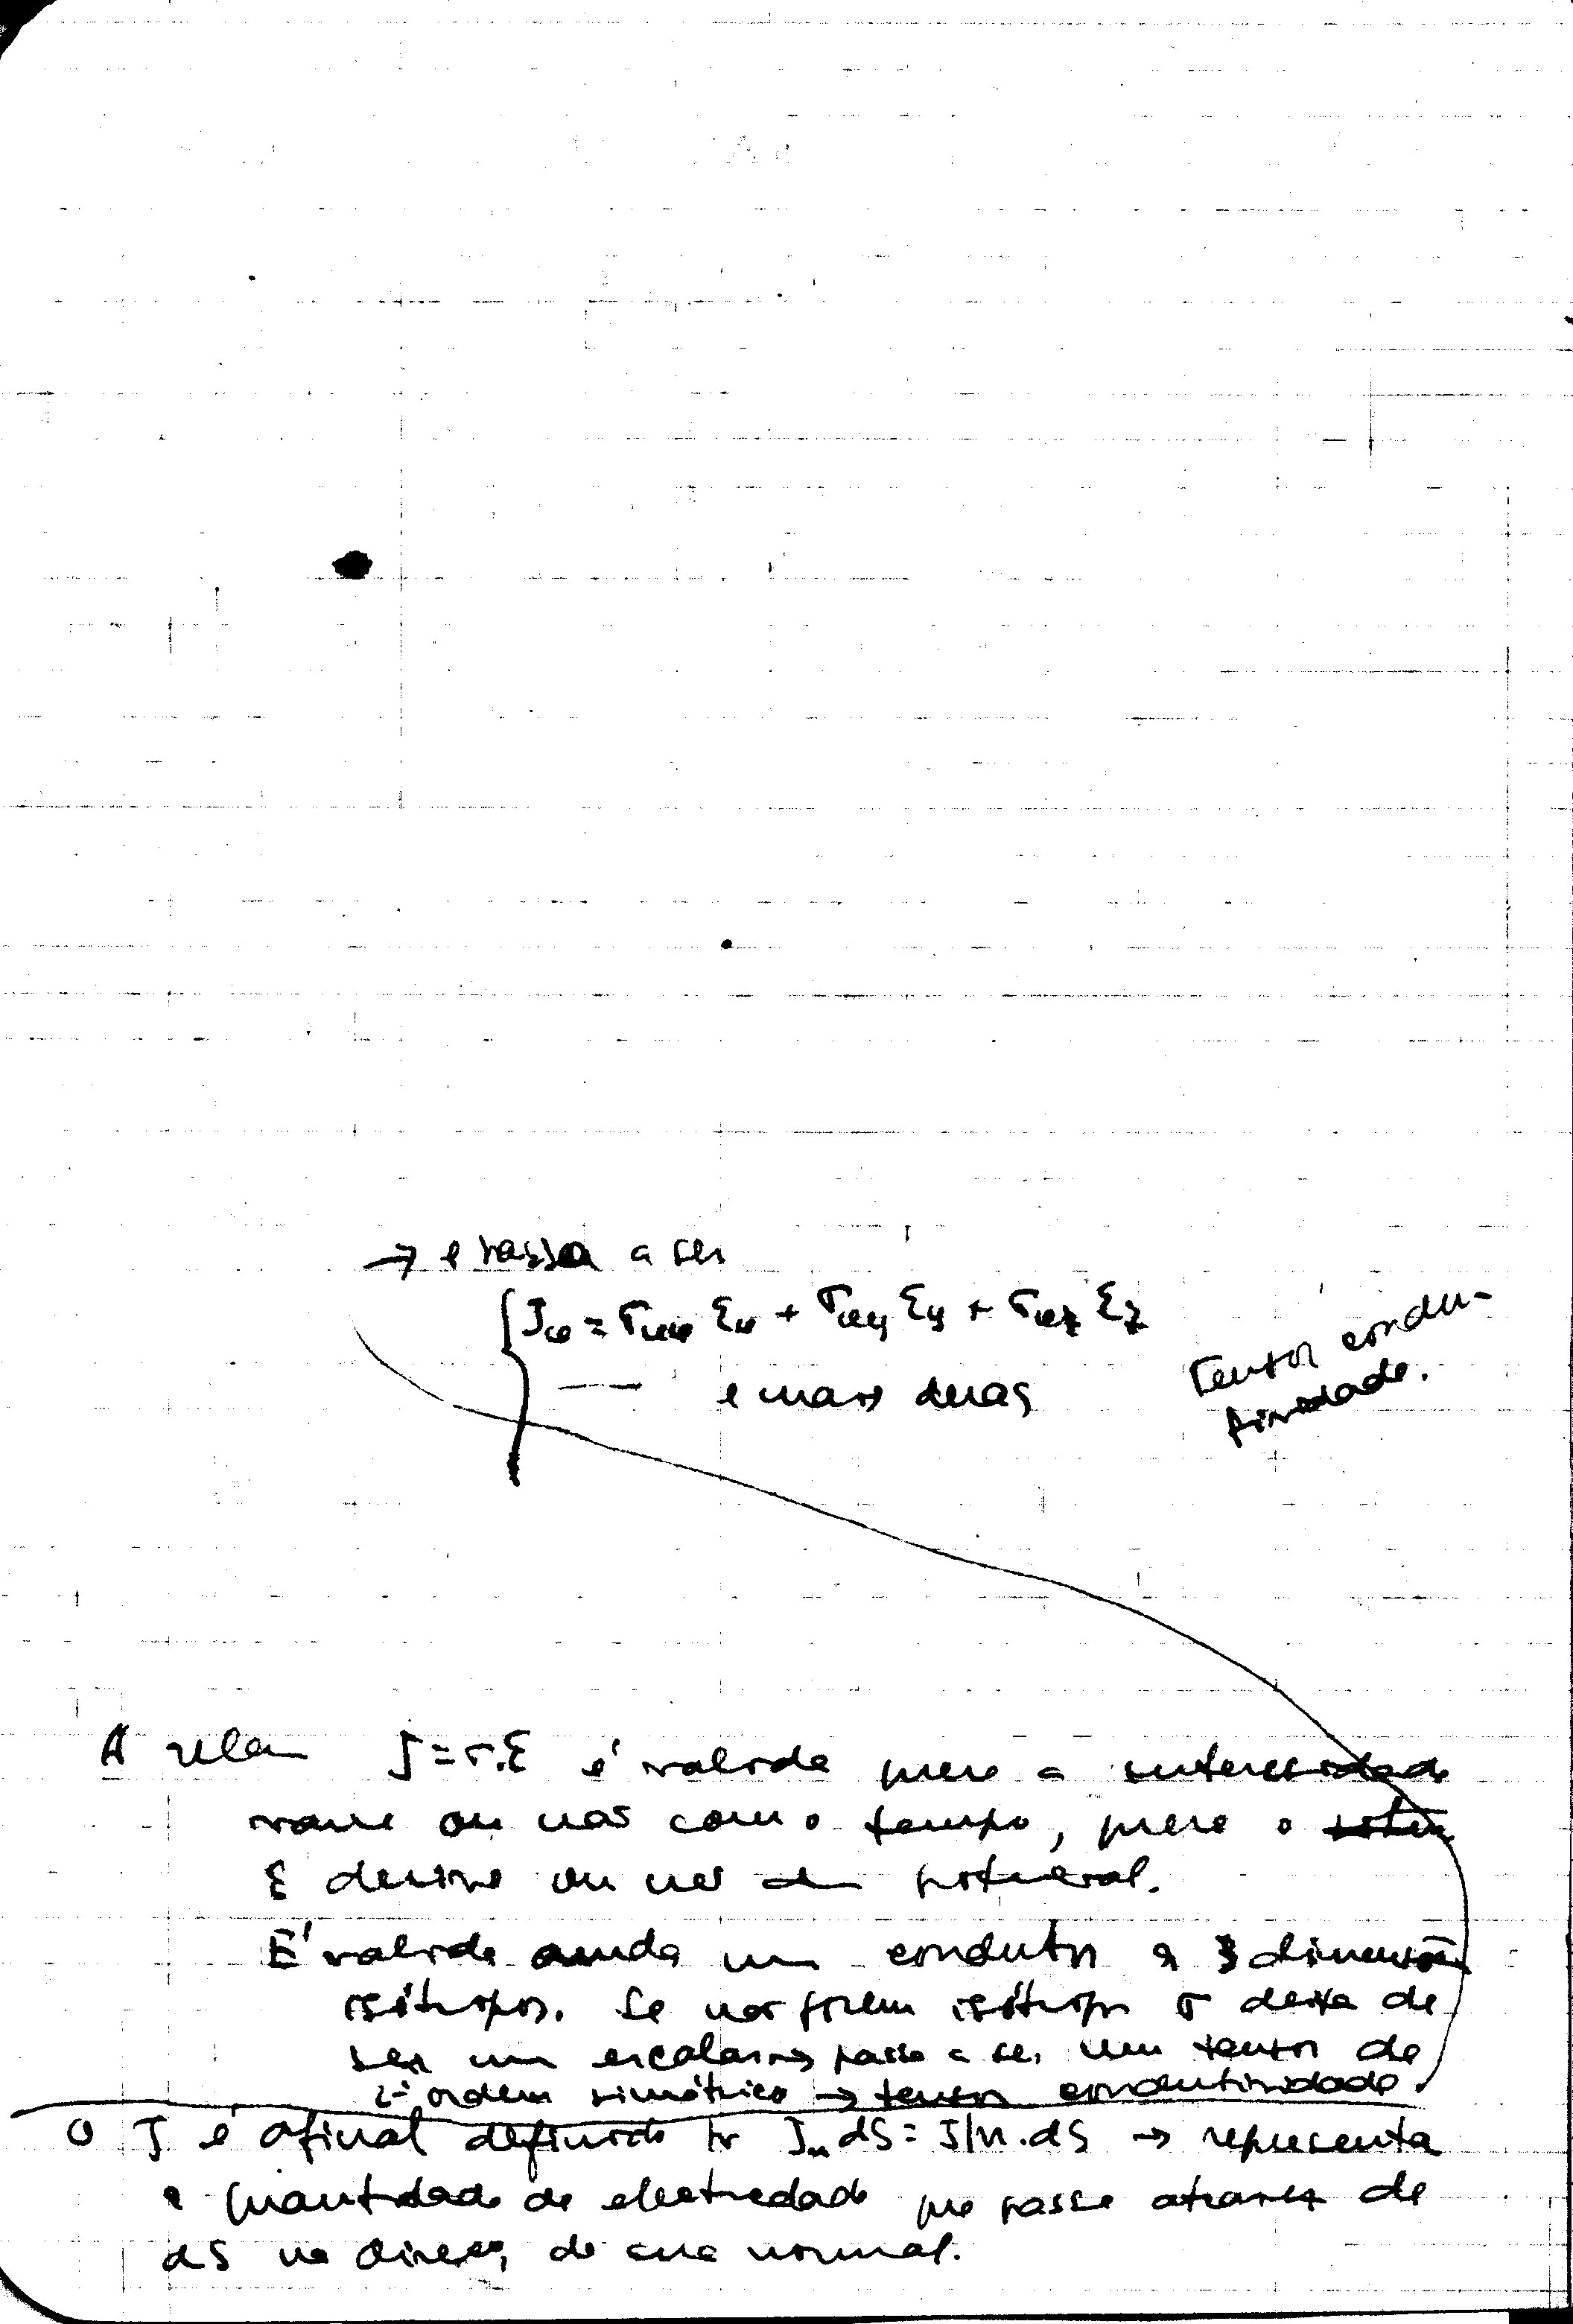 → e passa a ser
J𝓍 = σ𝓍𝓍 ℰ𝓍 + σ𝓍y ℰy + σ𝓍z ℰz
— e mais duas
Tensor condu-
tividade.
A relan J = σ.ℰ é valida quer a intensidade
varie ou não com o tempo, quer o
ℰ derive ou não de um potencial.
É valida ainda um condutor a 3 dimensões
isótropos. Se não forem isótropos σ deixa de
ser um escalar → passa a ser um tensor de
2ª ordem simétrico → tensor condutividade.
O J é afinal definido por Jn dS = J|n.dS → representa
a quantidade de electricidade que passa através de
dS na direcç, de sua normal.